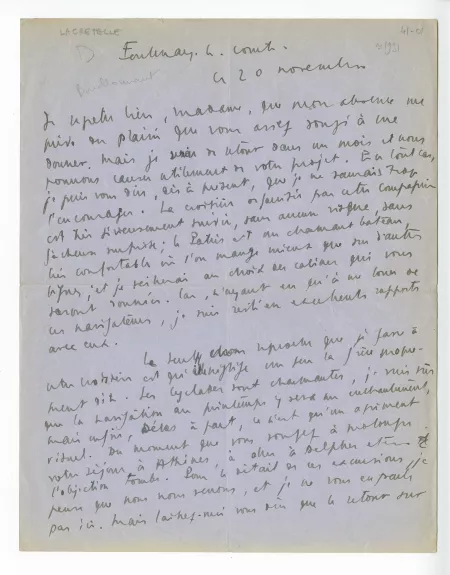 LACRETELLE
Fontenay-le-Comte.
ce 20 novembre
Je regrette bien, Madame, que mon absence me
prive du plaisir que vous aviez songé à me
donner. Mais je serai de retour dans un mois et nous
pourrons causer utilement de votre projet. En tout cas,
je puis vous dire, dès à présent, que je ne saurais trop
l'encourager. La croisière organisée par cette compagnie
est très sérieusement suivie, sans aucun risque, sans
fâcheuse surprise; le Patris est un charmant bateau,
très confortable où l'on mange mieux que sur d'autres
lignes; et je veillerai au choix des cabines qui vous
seront données. Car, n'ayant eu qu'à me louer de
ces navigateurs, je suis resté en excellents rapports
avec eux.
Le seul reproche que je fasse à
votre croisière est qu'elle néglige un peu la Grèce propre-
ment dite. Les Cyclades sont charmantes, je suis sûr
que la navigation au printemps y sera un enchantement,
mais enfin, Délos à part, ce n'est qu'un agrément
visuel. Du moment que vous songez à prolonger
votre séjour à Athènes, à aller à Delphes etc.
l'objection tombe. Pour le détail de ces excursions, je
pense que nous nous verrons, et je ne vous en parle
pas ici. Mais laissez-moi vous dire que le retour sur